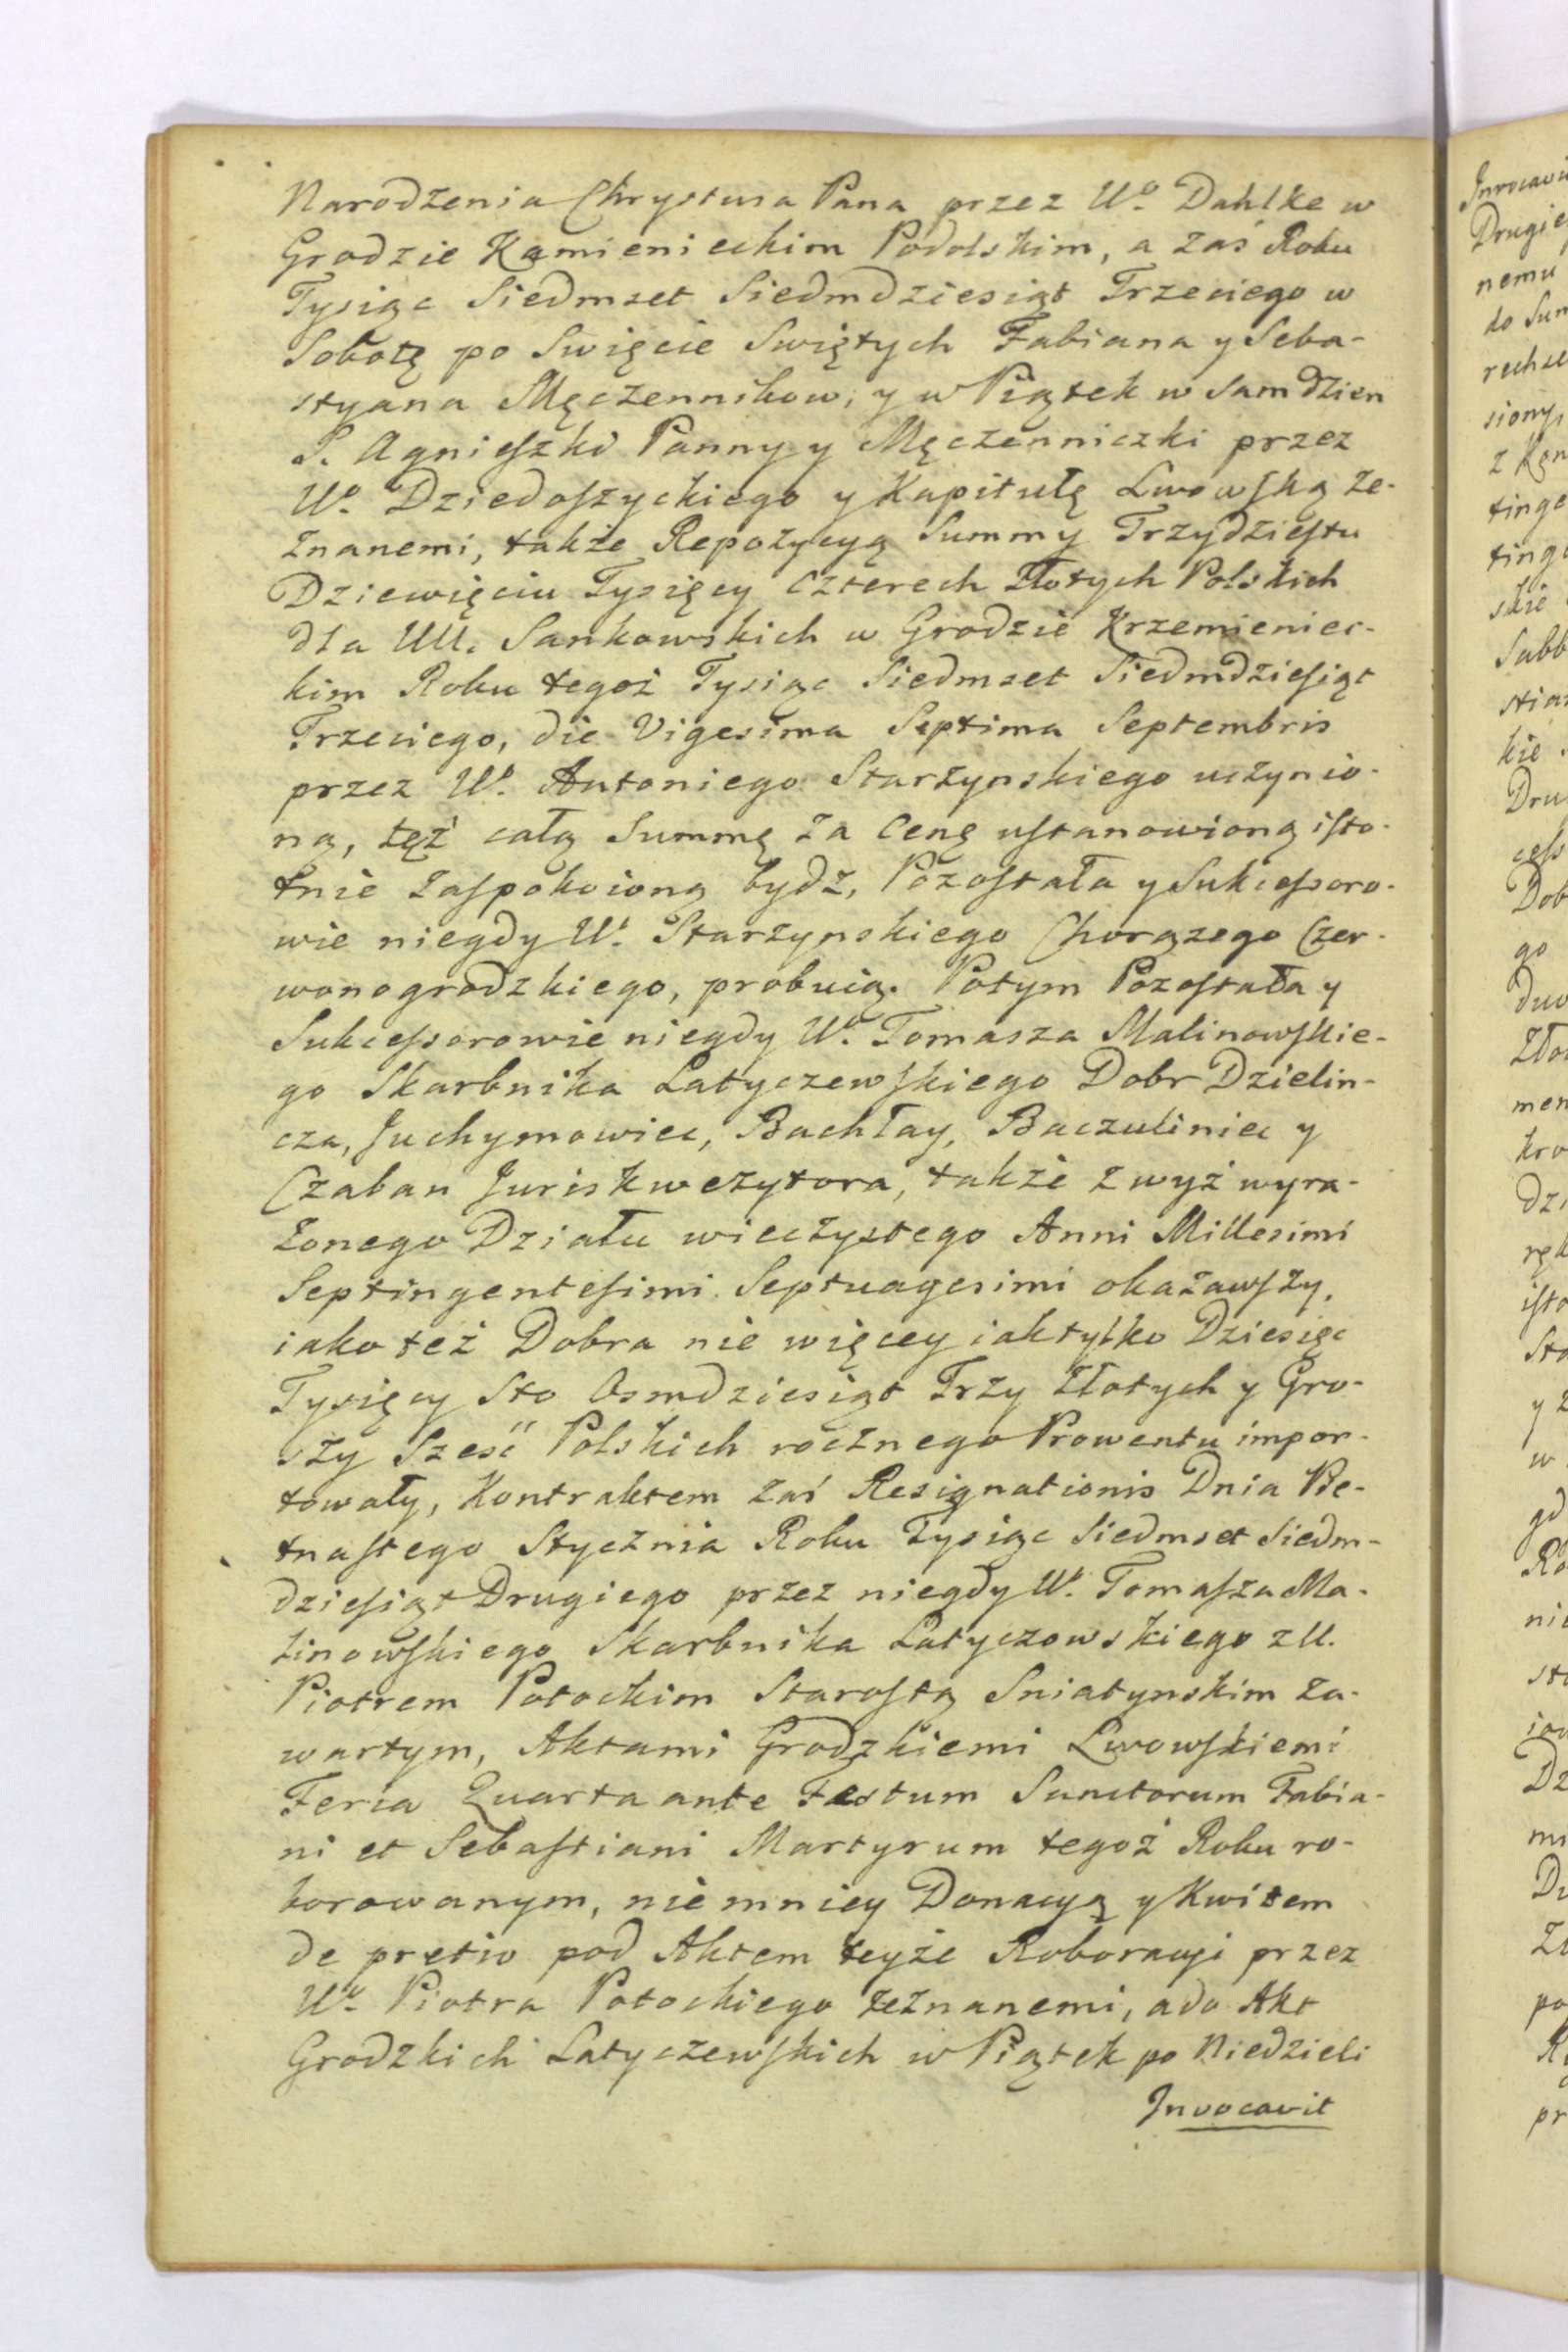 Narodzenia Chrystusa Pana przez Wo. Dahlke w
Grodzie Kamienieckim Podolskim, a zaś Roku
Tysiąc Siedmset Siedmdziesiąt Trzeciego w
Sobotę po Swięcie Swiętych Fabiana y Seba-
styana Męczennikow, y w Piątek w sam dzien
S. Agnieszki Panny y Męczenniczki przez
Wo. Dziedoszyckiego y Kapitułę Lwowską ze-
znanemi, także Repozycyą Summy Trzydziestu
Dziewięciu Tysięcy Czterech Złotych Polskich
dla UU. Sankowskich w Grodzie Krzemieniec-
kim Roku tegoż Tysiąc Siedmset Siedmdziesiąt
Trzeciego, die Vigesima Septima Septembris
przez Wo. Antoniego Starzynskiego uczynio-
ną, też całą Summę za Cenę ustanowioną isto-
tnie zaspokoioną bydz, Pozostała y Sukcessoro-
wie niegdy Wo. Starzynskiego Chorązego Czer-
wonogrodzkiego, probuią. Potym Pozostała y
Sukcessorowie niegdy Wo. Tomasza Malinowskie-
go Skarbnika Latyczewskiego Dobr Dzielin-
cza, Juchymowiec, Bachłay, Baczuliniec y
Czaban Juriskwezytora, także zwyż wyra-
żonego Działu wieczystego Anni Millesimi
Septingentesimi Septuagesimi okazawszy,
iako też Dobra nie więcey iak tylko Dziesięc
Tysięcy Sto Osmdziesiąt Trzy Złotych y Gro-
szy Sześć Polskich rocznego Prowentu impor-
towały, Kontraktem zaś Resignationis Dnia Pię-
tnastego Stycznia Roku Tysiąc Siedmset Siedm-
dziesiąt Drugiego przez niegdy Wo. Tomasza Ma-
linowskiego Skarbnika Latyczowskiego z U.
Piotrem Potockim Starostą Sniatynskim za-
wartym, Aktami Grodzkiemi Lwowskiemi
Feria Quarta ante Festum Sanctorum Fabia-
ni et Sebastiani Martyrum tegoż Roku ro-
borowanym, nie mniey Donacyą y Kwitem
de pretio pod Aktem teyże Roboracyi przez
Wo. Piotra Potockiego zeznanemi, a do Akt
Grodzkich Latyczewskich w Piątek po Niedzieli
Invocavit